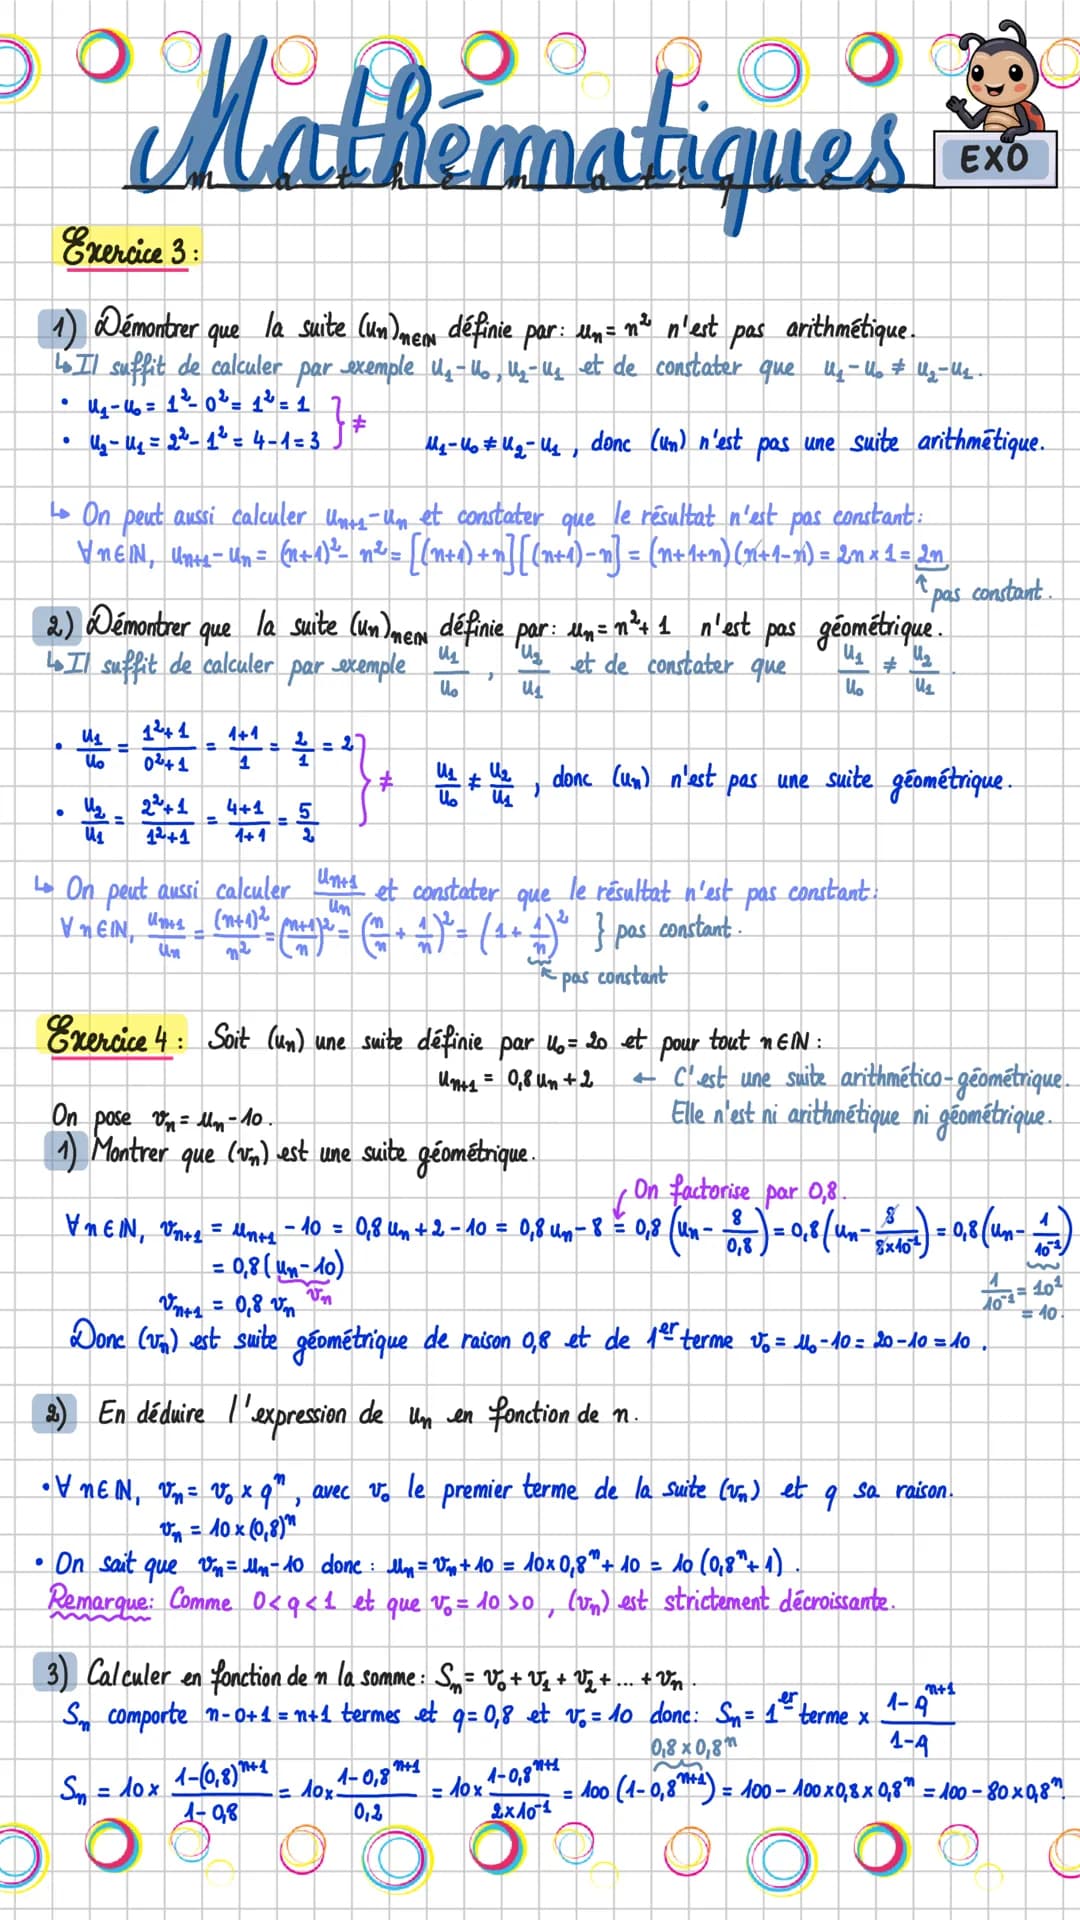 Mathématiques
mathématiques
EXO
Exercice 3 :
1) Démontrer que la suite (un)n∈ℕ définie par : un = n² n'est pas arithmétique.
↳ Il suffit de calculer par exemple u₁-u₀, u₂-u₁ et de constater que u₁-u₀ ≠ u₂-u₁.
• u₁-u₀ = 1²-0² = 1² = 1
• u₂-u₁ = 2²-1² = 4-1 = 3 } ≠ u₁-u₀ ≠ u₂-u₁, donc (un) n'est pas une suite arithmétique.
↳ On peut aussi calculer un+1-un et constater que le résultat n'est pas constant :
∀n∈ℕ, un+1-un = (n+1)²-n² = [(n+1)+n][(n+1)-n] = (n+1+n)(n+1-n) = 2n×1 = 2n
↑ pas constant.
2) Démontrer que la suite (un)n∈ℕ définie par : un = n²+1 n'est pas géométrique.
↳ Il suffit de calculer par exemple u₁/u₀, u₂/u₁ et de constater que u₁/u₀ ≠ u₂/u₁.
• u₁/u₀ = (1²+1)/(0²+1) = (1+1)/1 = 2/1 = 2
} ≠ u₁/u₀ ≠ u₂/u₁, donc (un) n'est pas une suite géométrique.
• u₂/u₁ = (2²+1)/(1²+1) = (4+1)/(1+1) = 5/2
↳ On peut aussi calculer un+1/un et constater que le résultat n'est pas constant :
∀n∈ℕ, un+1/un = (n+1)²/n² = ((n+1)/n)² = (n/n + 1/n)² = (1+1/n)² } pas constant.
↖ pas constant
Exercice 4 : Soit (un) une suite définie par u₀ = 20 et pour tout n∈ℕ :
un+1 = 0,8un+2 ← C'est une suite arithmético-géométrique.
Elle n'est ni arithmétique ni géométrique.
On pose vn = un-10.
1) Montrer que (vn) est une suite géométrique.
On factorise par 0,8.
∀n∈ℕ, vn+1 = un+1 - 10 = 0,8un+2-10 = 0,8un-8 = 0,8(un - 8/0,8) = 0,8(un - 8/(8×10⁻¹)) = 0,8(un - 1/10⁻¹)
= 0,8(un-10)
vn
1/10⁻¹ = 10¹
= 10.
vn+1 = 0,8vn
Donc (vn) est suite géométrique de raison 0,8 et de 1er terme v₀ = u₀-10 = 20-10 = 10.
2) En déduire l'expression de un en fonction de n.
• ∀n∈ℕ, vn = v₀×qⁿ, avec v₀ le premier terme de la suite (vn) et q sa raison.
vn = 10×(0,8)ⁿ
• On sait que vn = un-10 donc : un = vn+10 = 10×0,8ⁿ+10 = 10(0,8ⁿ+1).
Remarque : Comme 0<q<1 et que v₀ = 10>0, (vn) est strictement décroissante.
3) Calculer en fonction de n la somme : Sn = v₀+v₁+v₂+...+vn.
Sn comporte n-0+1 = n+1 termes et q = 0,8 et v₀ = 10 donc : Sn = 1er terme × (1-qⁿ⁺¹)/(1-q)
0,8×0,8ⁿ
Sn = 10× (1-(0,8)ⁿ⁺¹)/(1-0,8) = 10× (1-0,8ⁿ⁺¹)/0,2 = 10× (1-0,8ⁿ⁺¹)/(2×10⁻¹) = 100(1-0,8ⁿ⁺¹) = 100-100×0,8×0,8ⁿ = 100-80×0,8ⁿ.